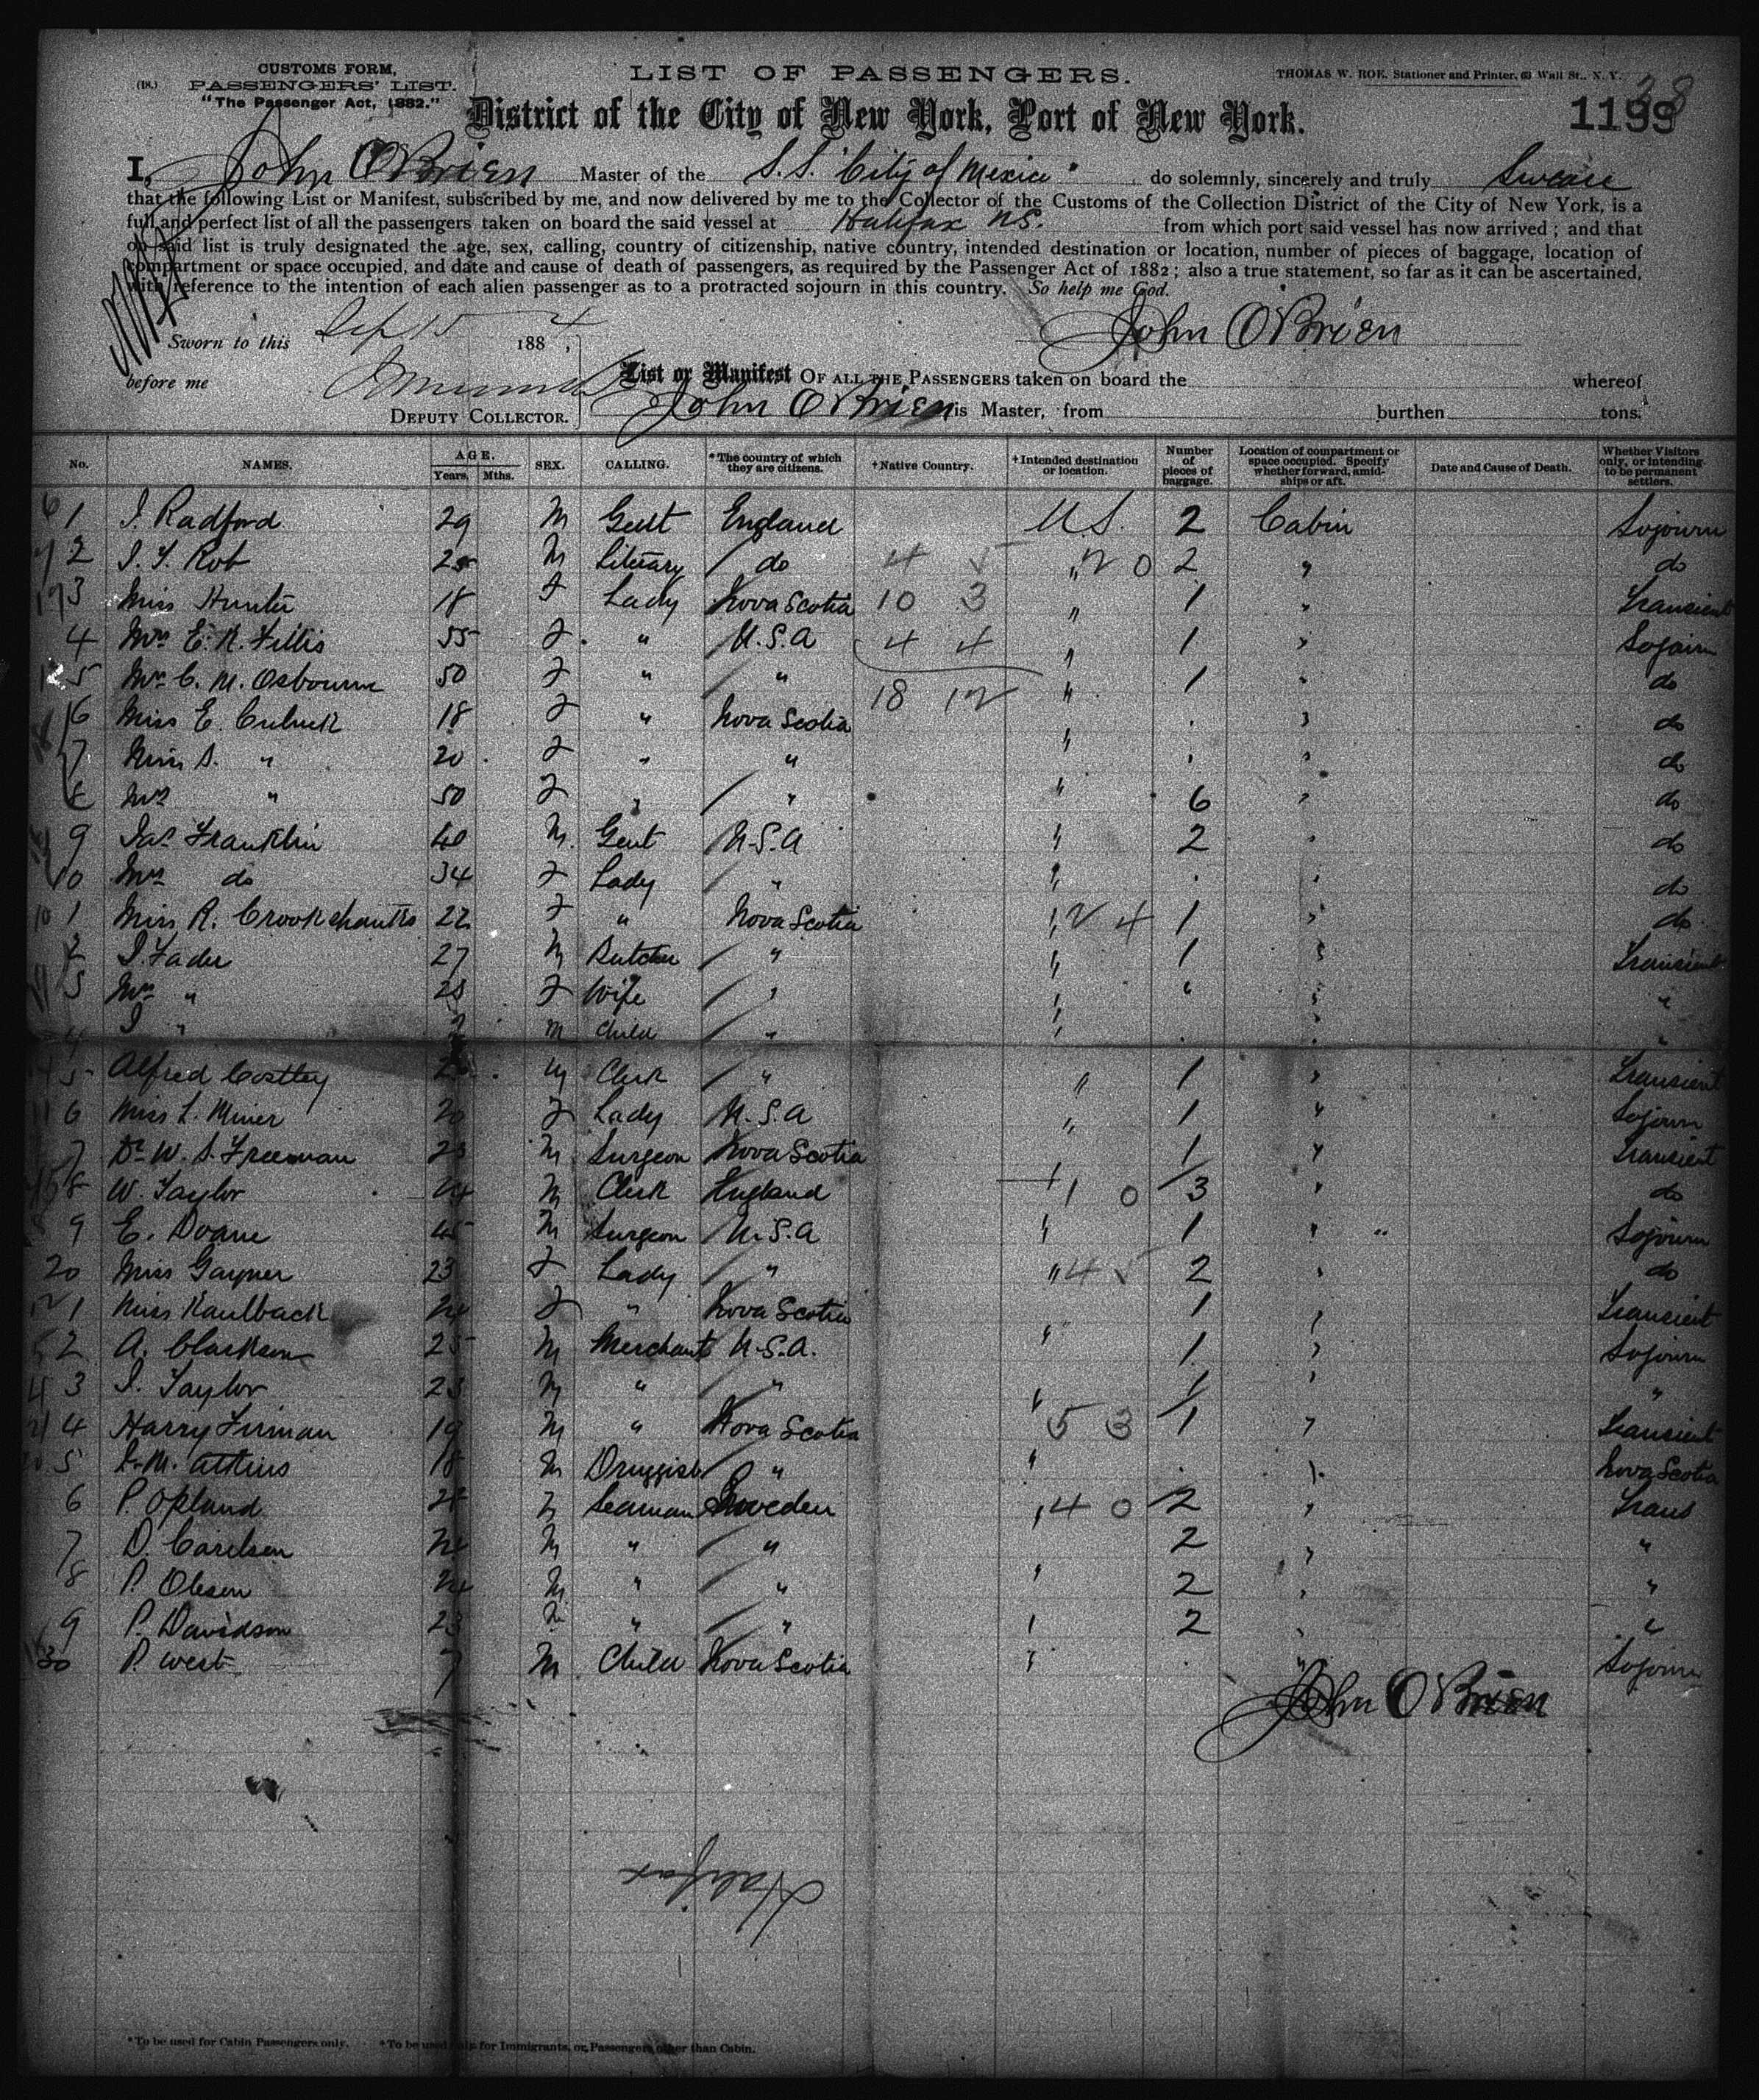 CUSTOMS FORM,
(18.) PASSENGERS' LIST.
"The Passenger Act, 1882."
LIST OF PASSENGERS.
THOMAS W. ROE, Stationer and Printer, 63 Wall St., N. Y.
District of the City of New York, Port of New York.
1199
I, John O'Brien Master of the S.S. "City of Mexico" do solemnly, sincerely and truly Swear
that the following List or Manifest, subscribed by me, and now delivered by me to the Collector of the Customs of the Collection District of the City of New York, is a
full and perfect list of all the passengers taken on board the said vessel at Halifax N.S. from which port said vessel has now arrived; and that
on said list is truly designated the age, sex, calling, country of citizenship, native country, intended destination or location, number of pieces of baggage, location of
compartment or space occupied, and date and cause of death of passengers, as required by the Passenger Act of 1882; also a true statement, so far as it can be ascertained,
with reference to the intention of each alien passenger as to a protracted sojourn in this country. So help me God.
Sworn to this Sep 15 1884,
John O'Brien
before me
DEPUTY COLLECTOR.
List or Manifest OF ALL THE PASSENGERS taken on board the whereof
John O'Brien is Master, from burthen tons.
No. NAMES. AGE. Years, Mths. SEX. CALLING. *The country of which they are citizens. †Native Country. †Intended destination or location. Number of pieces of baggage. Location of compartment or space occupied. Specify whether forward, amidships or aft. Date and Cause of Death. Whether Visitors only, or intending to be permanent settlers.
1 J. Radford 29 M Gent England U.S. 2 Cabin Sojourn
2 J. Y. Rob 25 M Literary do 4 5 " 20 2 " do
3 Miss Hunter 18 F Lady Nova Scotia 10 3 " 1 " Transient
4 Mrs E. R. Fillis 55 F " U.S.A 4 4 " 1 " Sojourn
5 Mrs C. M. Osbourne 50 F " " 18 12 " 1 " do
6 Miss E. 18 F " Nova Scotia " " do
7 Miss S. " 20 F " " " " do
8 Mrs " 50 F " " " 6 " do
9 Jas Franklin 40 M Gent U.S.A " 2 " do
10 Mrs do 34 F Lady " " " do
1 Miss R. Crookshanks 22 F " Nova Scotia " 2 4 1 " do
2 J. Fader 27 M Butcher " " 1 " Transient
3 Mrs " F Wife " " " " "
4 J " M Child " " " "
5 Alfred Costley M Clerk " " 1 " Transient
6 Miss L. Miner 20 F Lady U.S.A " 1 " Sojourn
7 Dr W. S. Freeman M Surgeon Nova Scotia 1 " Transient
8 W. Taylor M Clerk England 1 0 3 " do
9 E. Doane 45 M Surgeon U.S.A " 1 " Sojourn
20 Miss Gayner 23 F Lady " " 4 5 2 " do
1 Miss Kaulback 24 F " Nova Scotia 1 " Transient
2 A. Clarkson 25 M Merchant U.S.A. " 1 " Sojourn
3 J. Taylor 23 M " " " 1 " "
4 Harry Firman 19 M " Nova Scotia 5 3 1 " Transient
5 L. M. Atkins 18 M Druggist " " " Nova Scotia
6 P. Opland M Seaman Sweden " 4 0 2 " Trans
7 D. Carlsen 24 M " " 2 " "
8 P. Olesen 24 M " " " 2 " "
9 P. Davidson 23 M " " " 2 " "
30 P. West 7 M Child Nova Scotia " " Sojourn
John O'Brien
Halifax
*To be used for Cabin Passengers only. †To be used only for Immigrants, or Passengers other than Cabin.